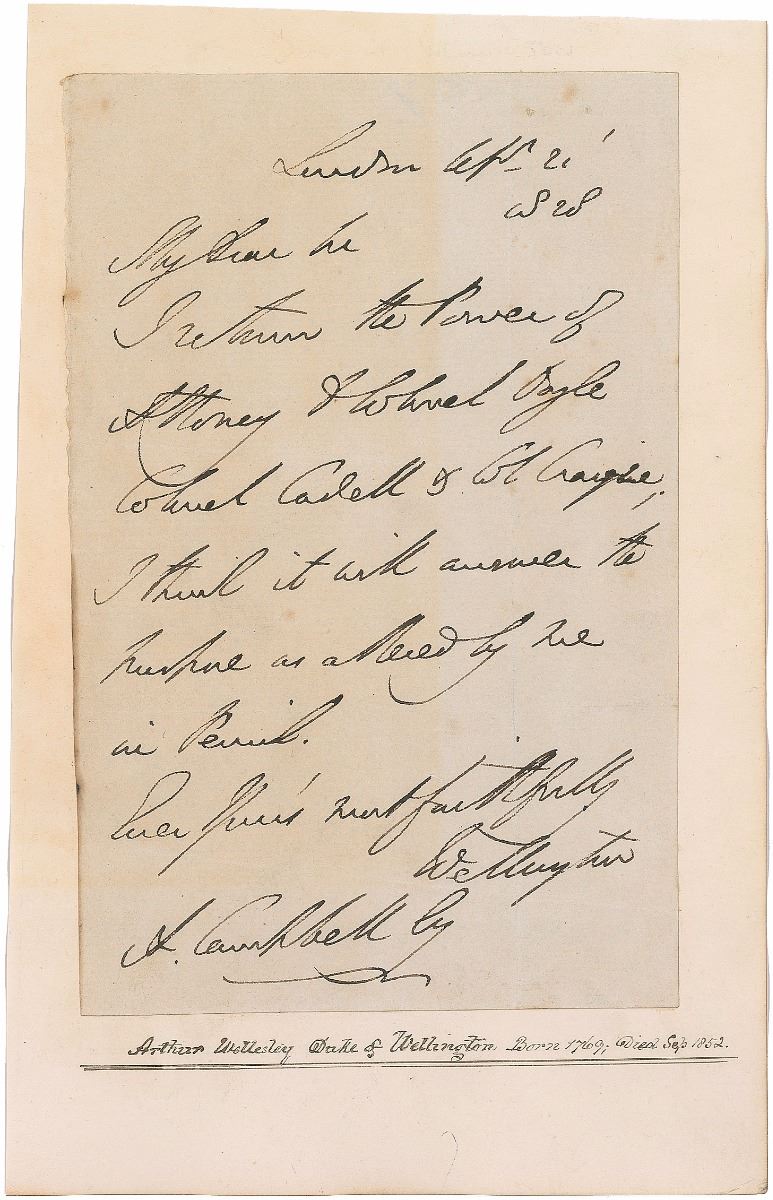 London Apl 21
1828
My Dear Sir
I return the Power of
Attorney & Colonel Doyle
Colonel Cadell & Col Craigie,
I think it will answer the
purpose as altered by me
in Pencil.
Ever Yours most faithfully
Wellington
A. Campbell Esq
Arthur Wellesley Duke of Wellington Born 1769; Died Sep 1852.